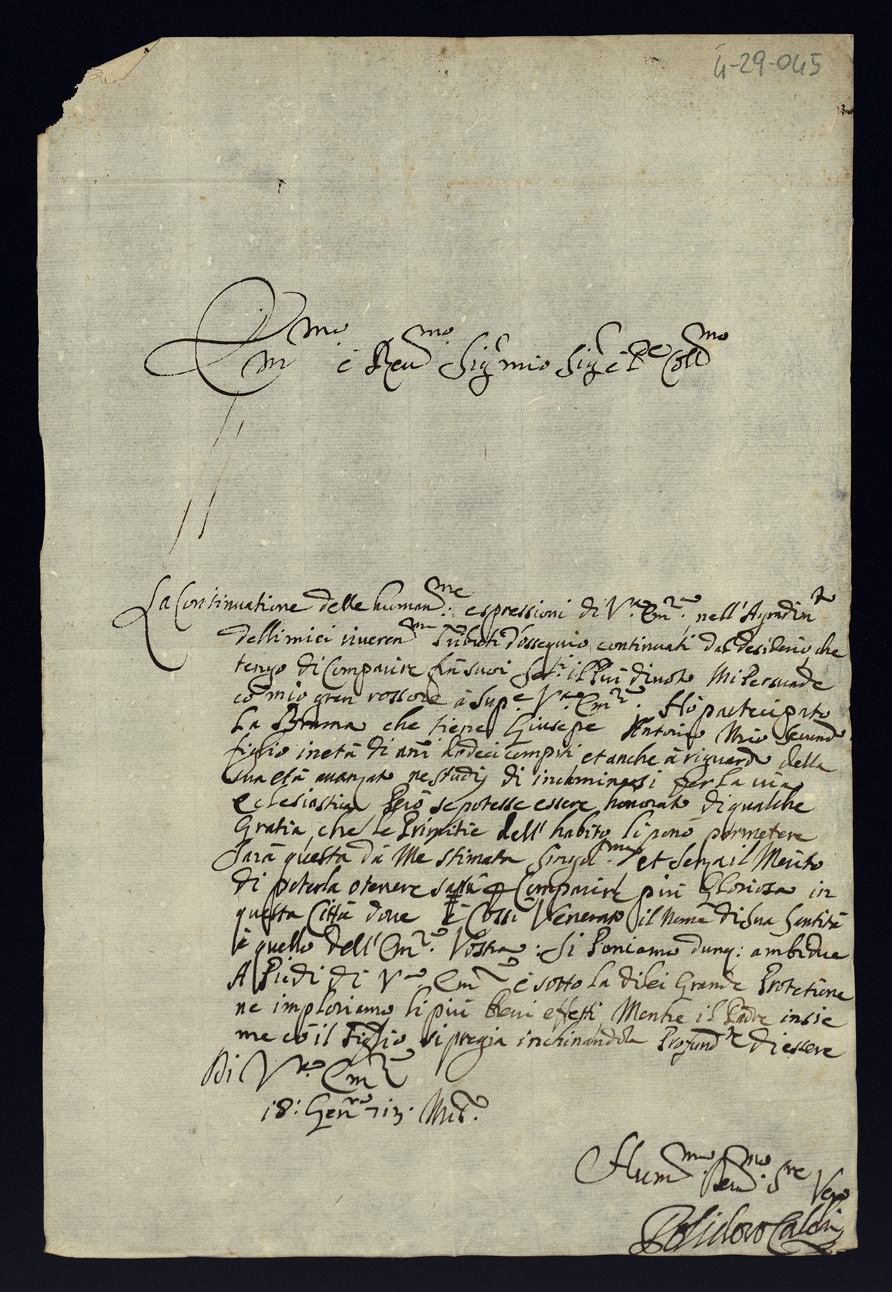 4-29-045
Em.mo e Reu.mo Sig.r mio Sig.r e P.ne Coll.mo
La Continuatione delle human.me espressioni di V.ra Em.za nell'Agradim.to
delli miei riueren.mi Tributi d'osseguio continuati dal desiderio che
tengo di Comparire frà suoi Ser.ri il Più diuoto Mi Persuade
cō mio gran rossore à Sup.e V.ra Em.za. Hò partecipato
La Brama che tiene Giusepe Antonio Mio Second.o
figlio in età di anī dodeci compiti et anche à riguardo della
sua età auanzato ne studij di incaminarsi per La uia
Eclesiastica Però se potesse essere honorato di qualche
Gratia, che le Primitie dell' habito li ponō permetere
Sarà questa dà Me stimata singol.ma et senza il Merito
di poterla otenere sarà Comparire più Gloriosa in
questa Città doue è Cossi Venerato il Nome di Sua Santità
è quello dell' Em.za Vostra. Si Poniamo dunq: ambidue
A Piedi di V.ra Em.za è sotto La di lei Grande Protetione
ne imploriamo li più breui effetti Mentre il Padre insie
me cō il Figlio si pregia inchinandola Profund.te di essere
Di V.ra Em.za
18: Gen.ro 713. Mil.o
Hum.mo Deu.mo S.re Vero
Polidoro Calchi